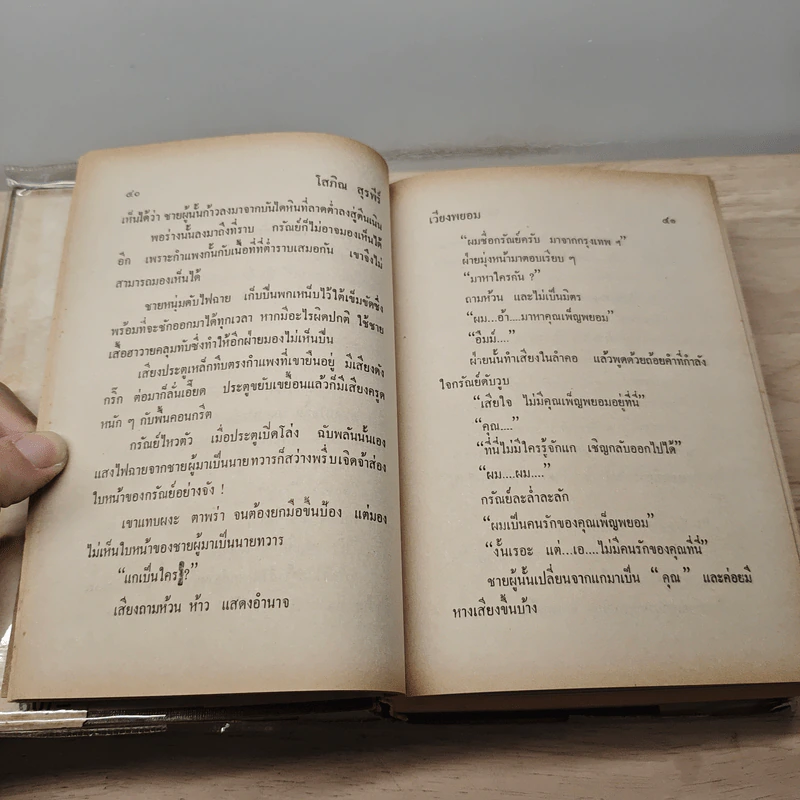 ๔๐
โสภิณ สุรพีร์
เห็นได้ว่า ชายผู้นั้นก้าวลงมาจากบันไดหินที่ลาดต่ำลงสู่ตีนเนิน
พอร่างนั้นลงมาถึงที่ราบ กรัณย์ก็ไม่อาจมองเห็นได้
อีก เพราะกำแพงกั้นกับเนื้อที่ที่ต่ำราบเสมอกัน เขาจึงไม่
สามารถมองเห็นได้
ชายหนุ่มดับไฟฉาย เก็บปืนพกเหน็บไว้ใต้เข็มขัดซึ่ง
พร้อมที่จะชักออกมาได้ทุกเวลา หากมีอะไรผิดปกติ ใช้ชาย
เสื้อฮาวายคลุมทับซึ่งทำให้อีกฝ่ายมองไม่เห็นปืน
เสียงประตูเหล็กทึบตรงกำแพงที่เขายืนอยู่ มีเสียงดัง
กริ๊ก ต่อมาก็ลั่นเอี๊ยด ประตูขยับเขยื้อนแล้วก็มีเสียงครูด
หนัก ๆ กับพื้นคอนกรีต
กรัณย์ไหวตัว เมื่อประตูเปิดโล่ง ฉับพลันนั้นเอง
แสงไฟฉายจากชายผู้มาเป็นนายทวารก็สว่างพรึ่บเจิดจ้าส่อง
ใบหน้าของกรัณย์อย่างจัง !
เขาแทบผงะ ตาพร่า จนต้องยกมือขึ้นป้อง แต่มอง
ไม่เห็นใบหน้าของชายผู้มาเป็นนายทวาร
“แกเป็นใคร?”
เสียงถามห้วน ห้าว แสดงอำนาจ
เวียงพยอม
๔๑
“ผมชื่อกรัณย์ครับ มาจากกรุงเทพ ฯ”
ฝ่ายมุ่งหน้ามาตอบเรียบ ๆ
“มาหาใครกัน ?”
ถามห้วน และไม่เป็นมิตร
“ผม...อ้า....มาหาคุณเพ็ญพยอม”
“อืมม์....”
ฝ่ายนั้นทำเสียงในลำคอ แล้วพูดด้วยถ้อยคำที่กำลัง
ใจกรัณย์ดับวูบ
“เสียใจ ไม่มีคุณเพ็ญพยอมอยู่ที่นี่”
“คุณ....”
“ที่นี่ไม่มีใครรู้จักแก เชิญกลับออกไปได้”
“ผม....ผม....”
กรัณย์ละล่ำละลัก
“ผมเป็นคนรักของคุณเพ็ญพยอม”
“งั้นเรอะ แต่...เอ....ไม่มีคนรักของคุณที่นี่”
ชายผู้นั้นเปลี่ยนจากแกมาเป็น “คุณ” และค่อยมี
หางเสียงขึ้นบ้าง